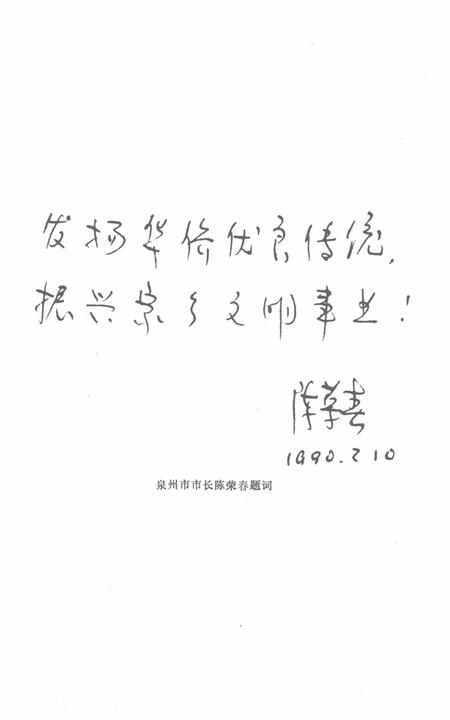 发扬华侨优良传统，
振兴家乡文明事业！
陈荣春
1990.2.10
泉州市市长陈荣春题词